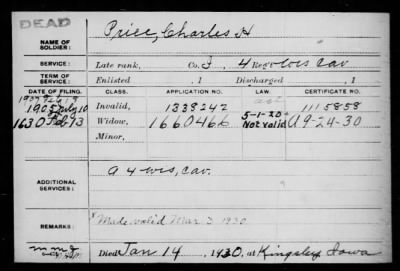 DEAD
NAME OF SOLDIER: Price, Charles H
SERVICE: Late rank, Co. F. 4 Reg't Wis Cav
TERM OF SERVICE: Enlisted , 1 Discharged , 1
DATE OF FILING. CLASS. APPLICATION NO. LAW. CERTIFICATE NO.
1905 July 10 Invalid, 1338242 1115858
1930 Feb 13 Widow, 1660466 5-1-20 Not valid A 9-24-30
Minor,
ADDITIONAL SERVICES: A 4 Wis, Cav.
REMARKS: Made valid Mar 3 1930
Died Jan 14, 1930, at Kingsley Iowa